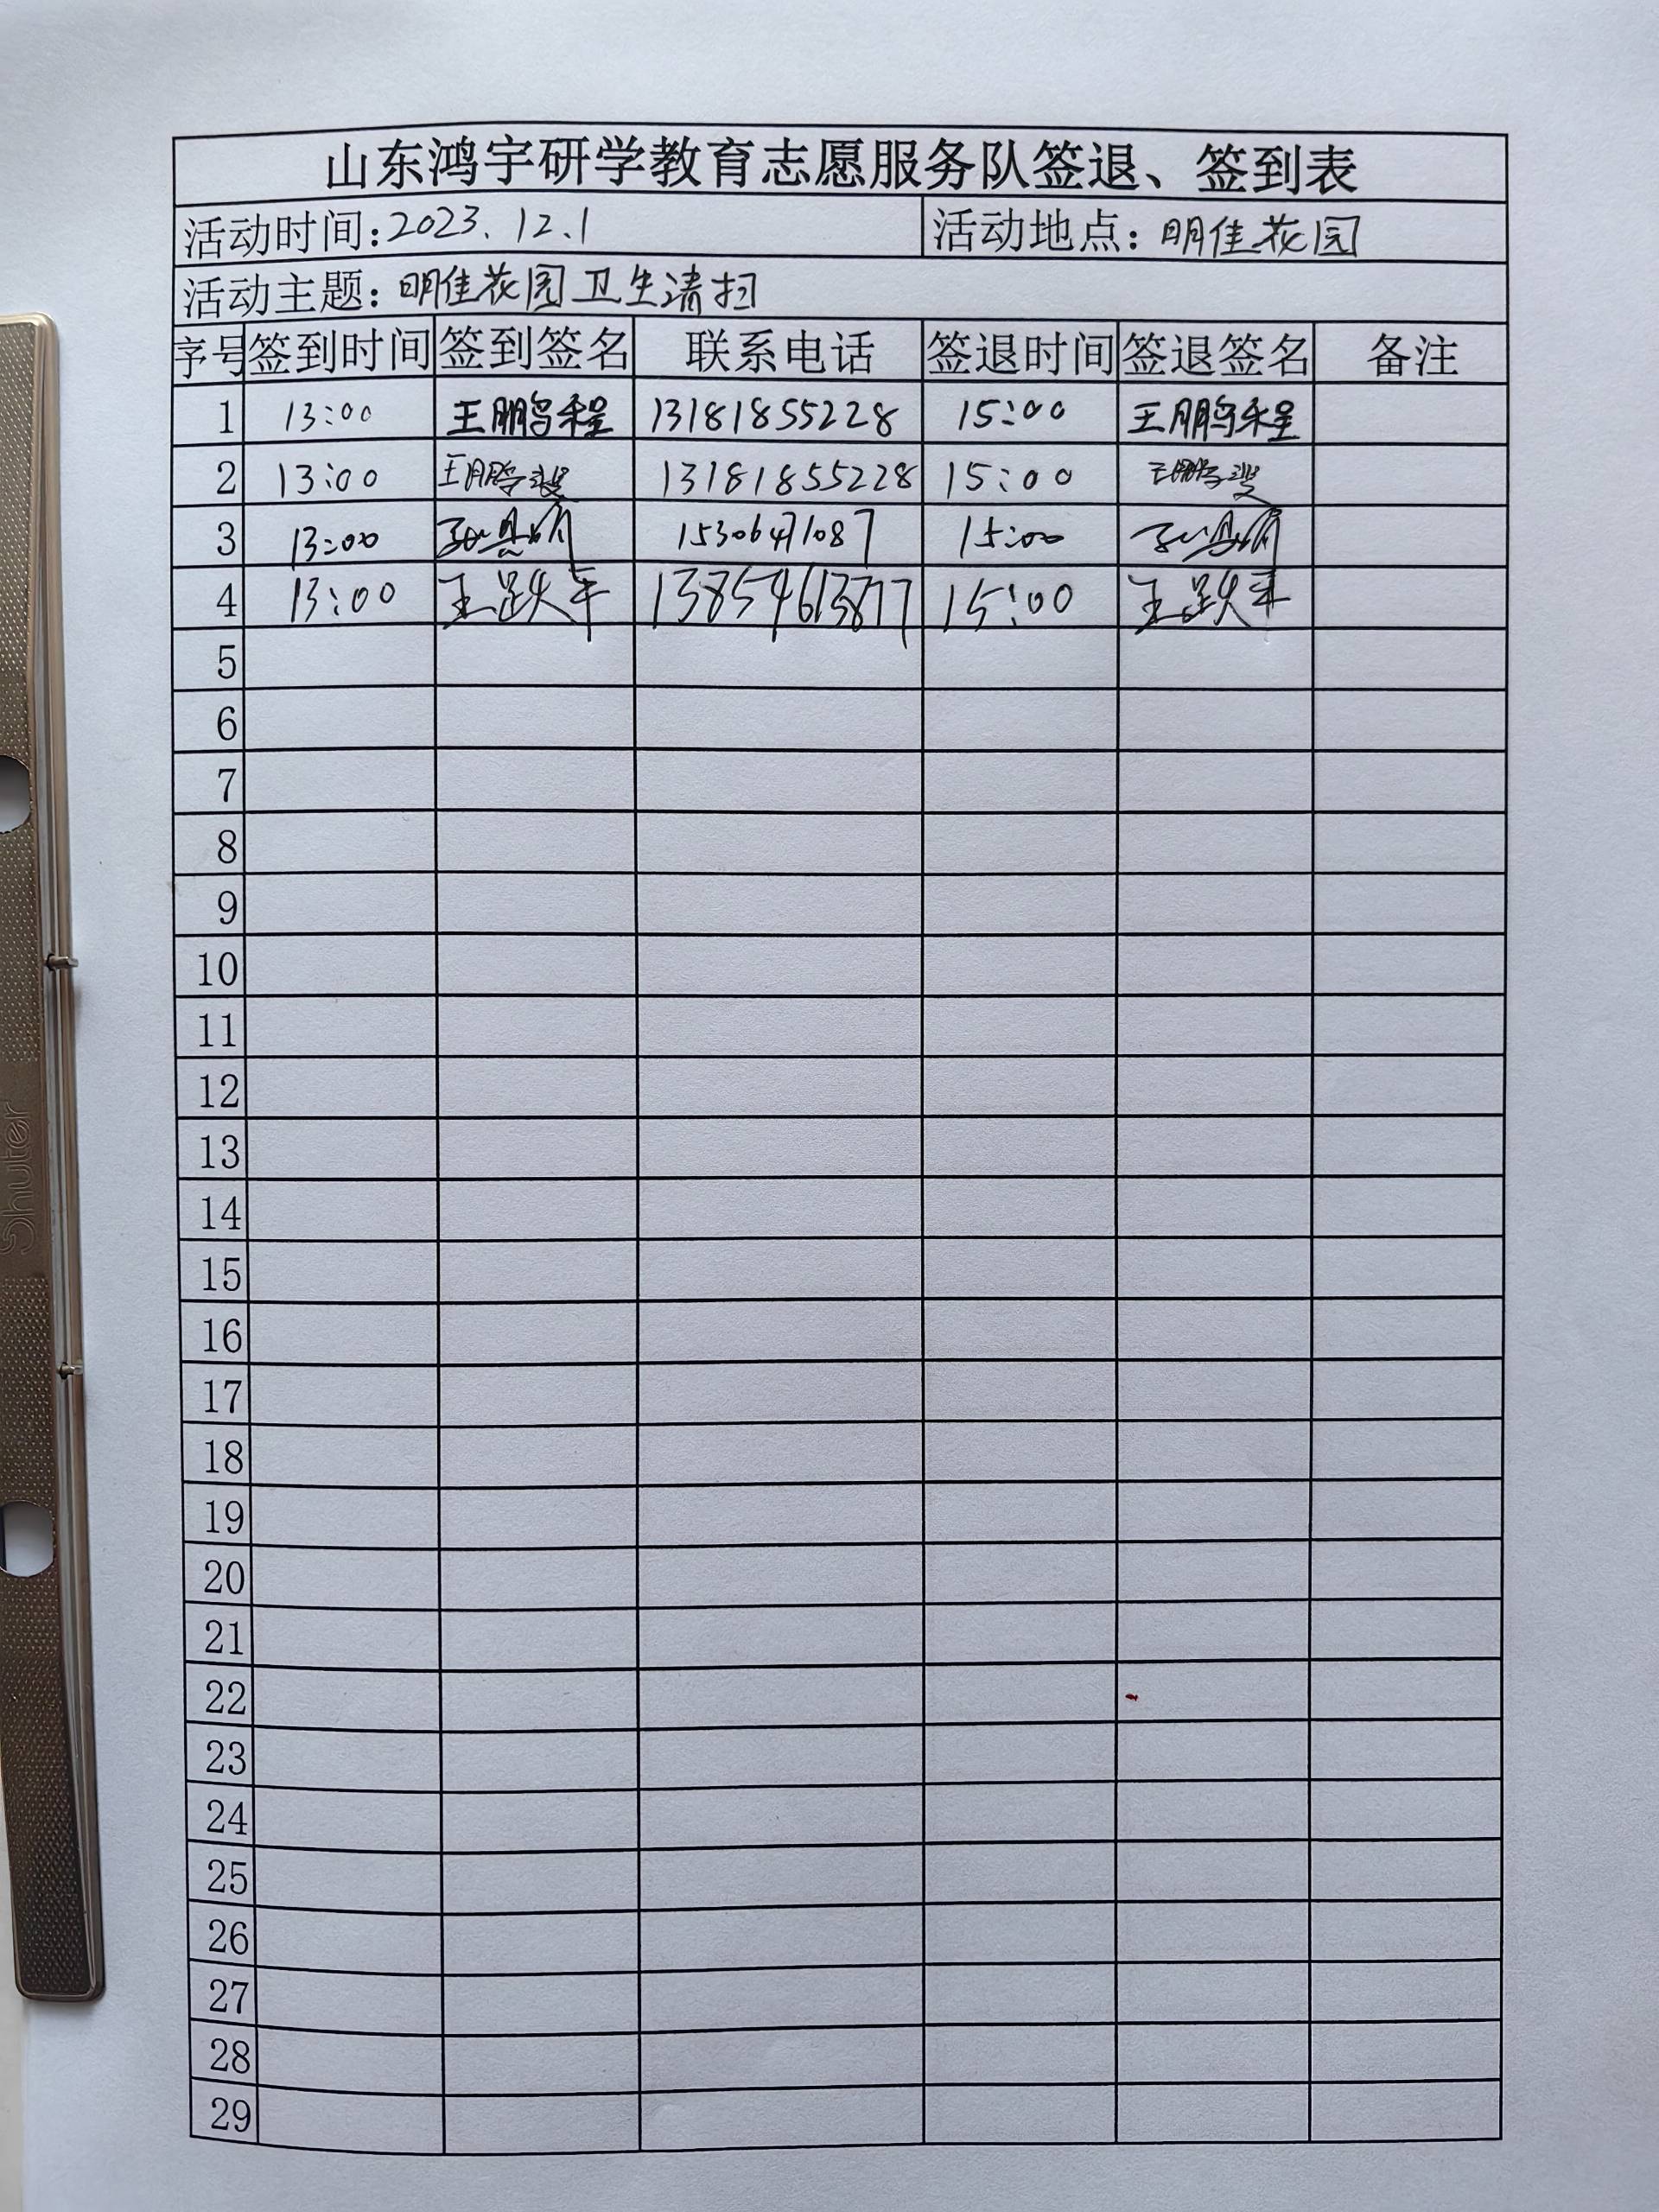 山东鸿宇研学教育志愿服务队签退、签到表
活动时间:2023.12.1 活动地点:明佳花园
活动主题:明佳花园卫生清扫
序号 签到时间 签到签名 联系电话 签退时间 签退签名 备注
1 13:00 王鹏程 13181855228 15:00 王鹏程
2 13:00 王鹏 13181855228 15:00 王鹏
3 13:00 15306471087 15:00
4 13:00 王跃平 13854613877 15:00 王跃平
5
6
7
8
9
10
11
12
13
14
15
16
17
18
19
20
21
22
23
24
25
26
27
28
29
Shuter